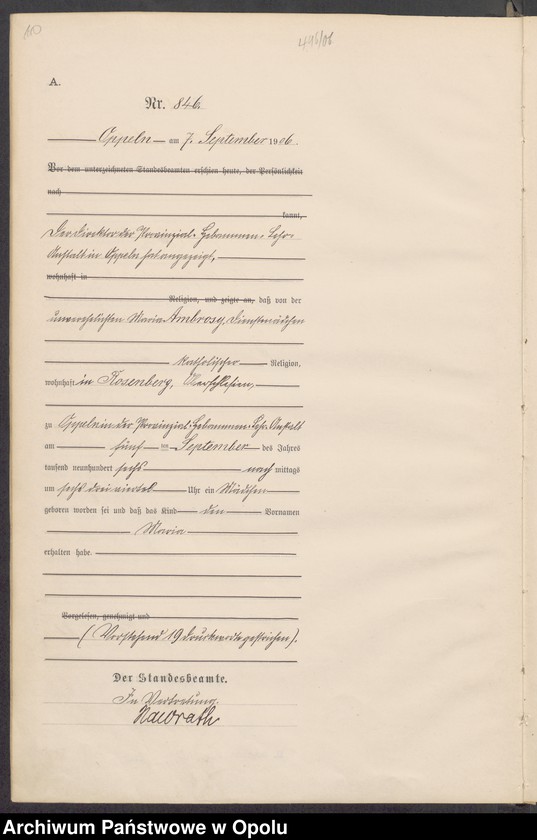 110
496/06
A.
Nr. 846.
Oppeln am 7. September 1906.
Vor dem unterzeichneten Standesbeamten erschien heute, der Persönlichkeit
nach
kannt,
Der Direktor der Provinzial-Hebammen-Lehr-
Anstalt in Oppeln hat angezeigt,
wohnhaft in
Religion, und zeigte an, daß von der
unverehelichten Maria Ambrosy, Dienstmädchen
katholischer Religion,
wohnhaft in Rosenberg, Oberschlesien,
zu Oppeln in der Provinzial-Hebammen-Lehr-Anstalt
am fünf ten September des Jahres
tausend neunhundert sechs nach mittags
um sechs dreiviertel Uhr ein Mädchen
geboren worden sei und daß das Kind den Vornamen
Maria
erhalten habe.
Vorgelesen, genehmigt und
(Vorstehend 19 Druckworte gestrichen).
Der Standesbeamte.
In Vertretung.
Nawrath
Archiwum Państwowe w Opolu